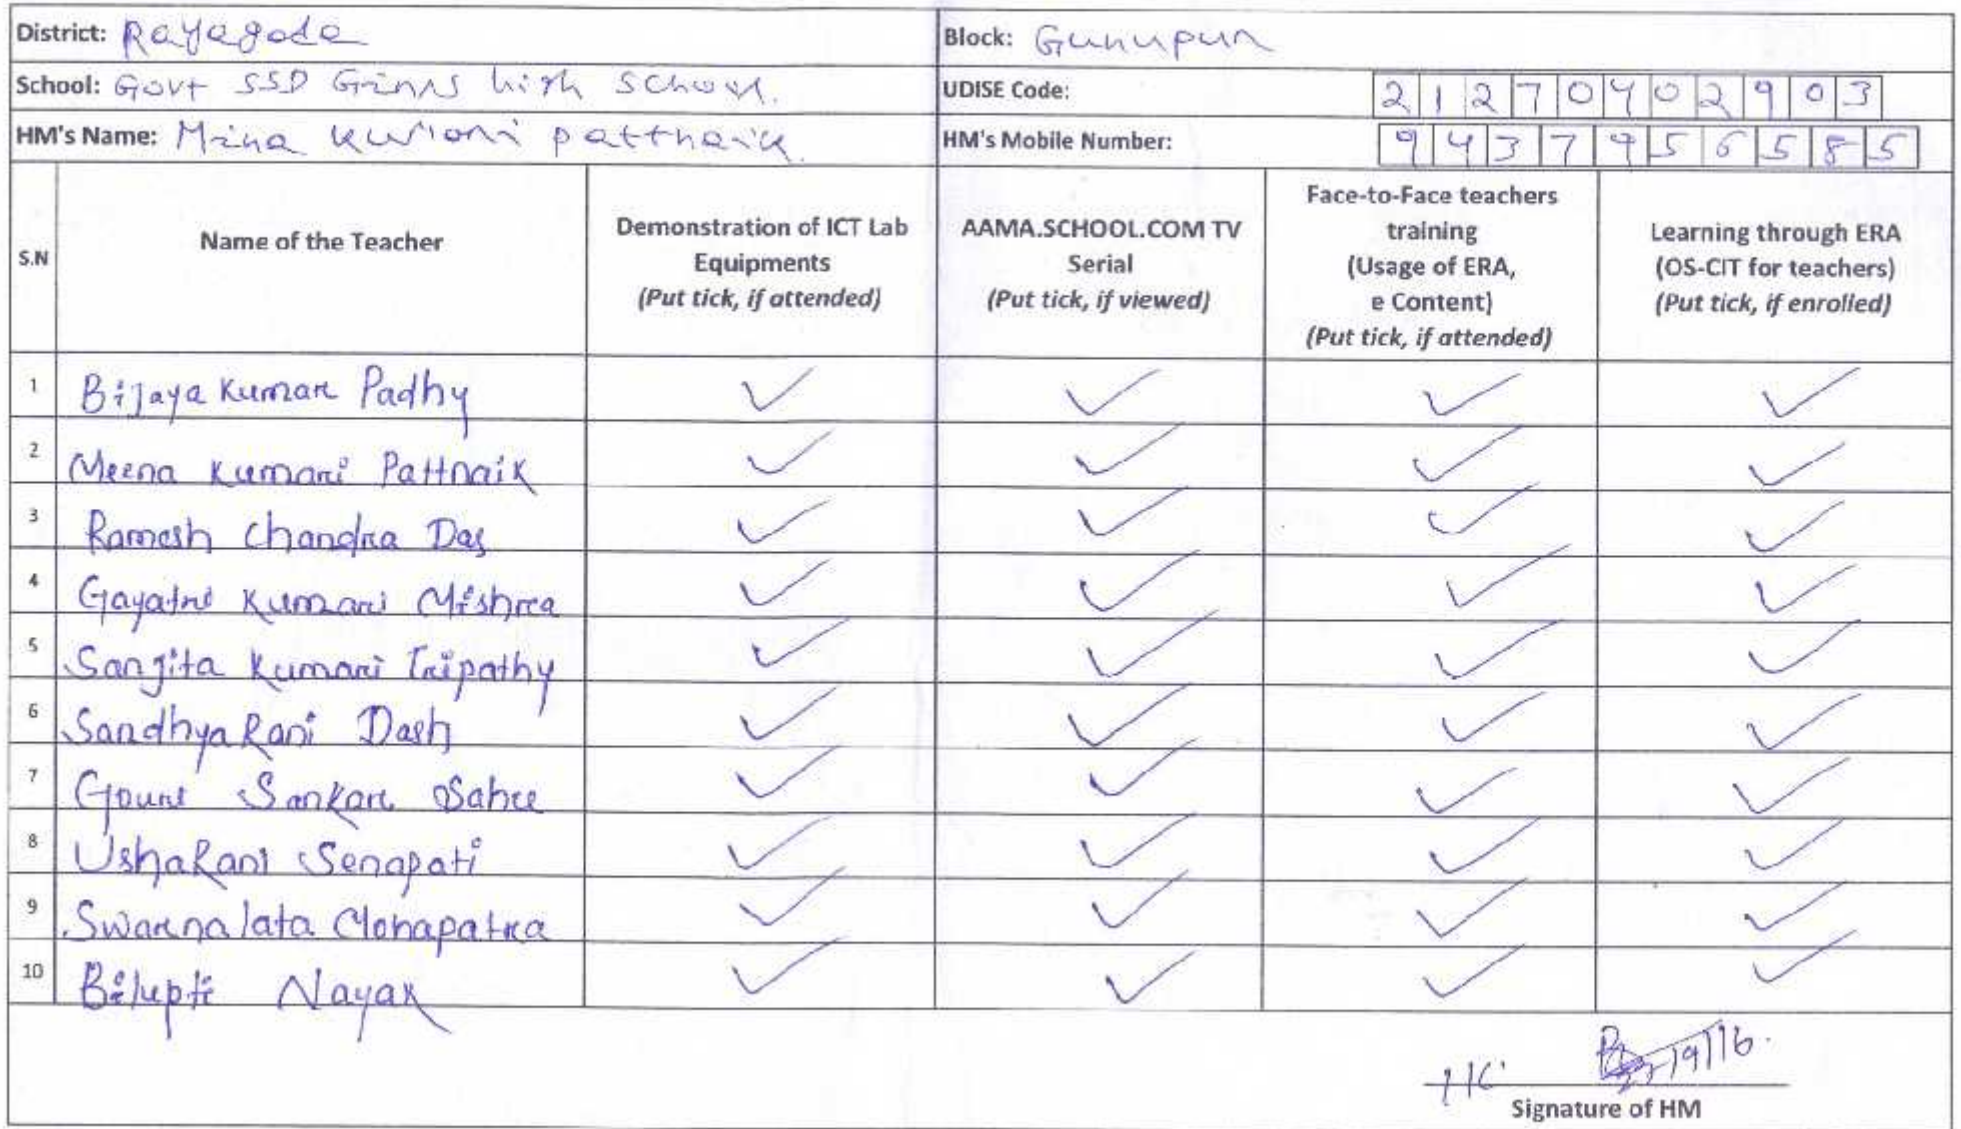 District: Rayagada Block: Gunupur
School: Govt SSD Girls high School. UDISE Code: 21270402903
HM's Name: Mina Kumari pattnaik HM's Mobile Number: 9437956585
S.N Name of the Teacher Demonstration of ICT Lab Equipments (Put tick, if attended) AAMA.SCHOOL.COM TV Serial (Put tick, if viewed) Face-to-Face teachers training (Usage of ERA, e Content) (Put tick, if attended) Learning through ERA (OS-CIT for teachers) (Put tick, if enrolled)
1 Bijaya Kumar Padhy ✓ ✓ ✓ ✓
2 Meena Kumari Pattnaik ✓ ✓ ✓ ✓
3 Ramesh Chandra Das ✓ ✓ ✓ ✓
4 Gayatri Kumari Mishra ✓ ✓ ✓ ✓
5 Sanjita Kumari Tripathy ✓ ✓ ✓ ✓
6 Sandhya Rani Dash ✓ ✓ ✓ ✓
7 Gouri Sankar Sahu ✓ ✓ ✓ ✓
8 Usha Rani Senapati ✓ ✓ ✓ ✓
9 Swarnalata Mohapatra ✓ ✓ ✓ ✓
10 Nayak ✓ ✓ ✓ ✓
Signature of HM